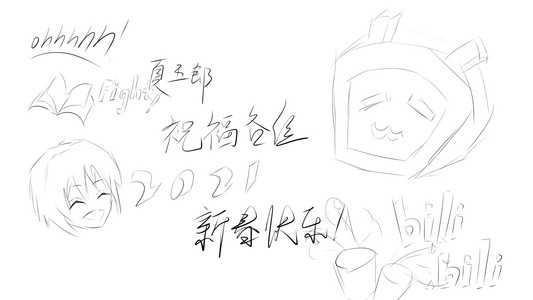 ohhhhh!
Fight
夏五郎
祝福各位
2021
新春快乐!
bili
bili